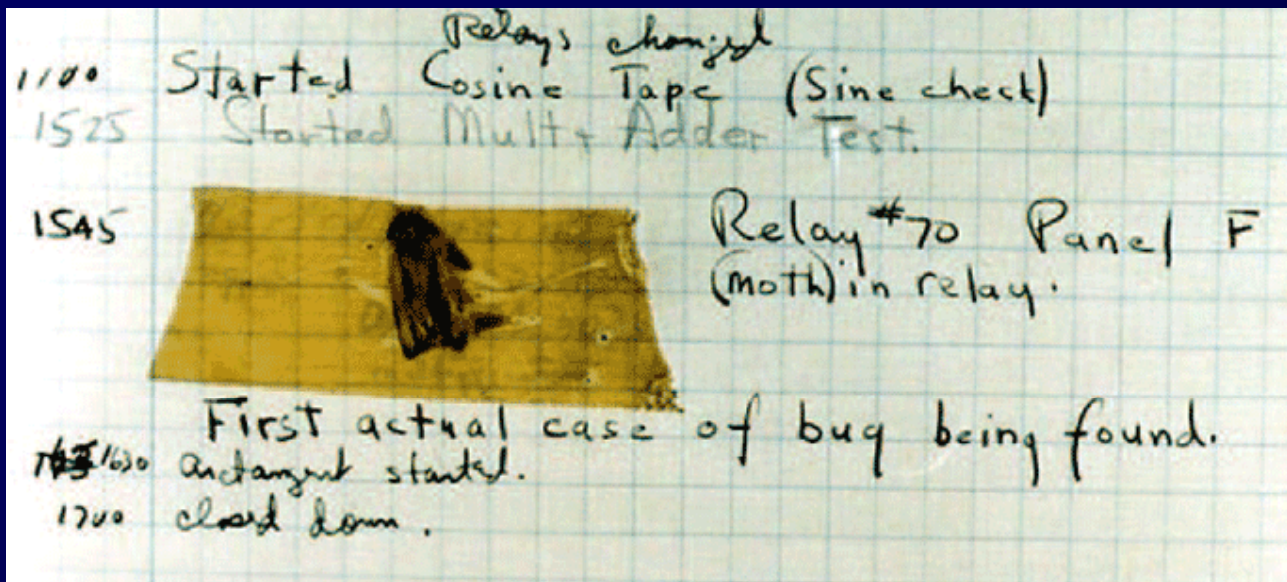 Relays changed
1100 Started Cosine Tape (Sine check)
1525 Started Mult+Adder Test.
1545 Relay #70 Panel F
(moth) in relay.
First actual case of bug being found.
1630 arctangent started.
1700 closed down.